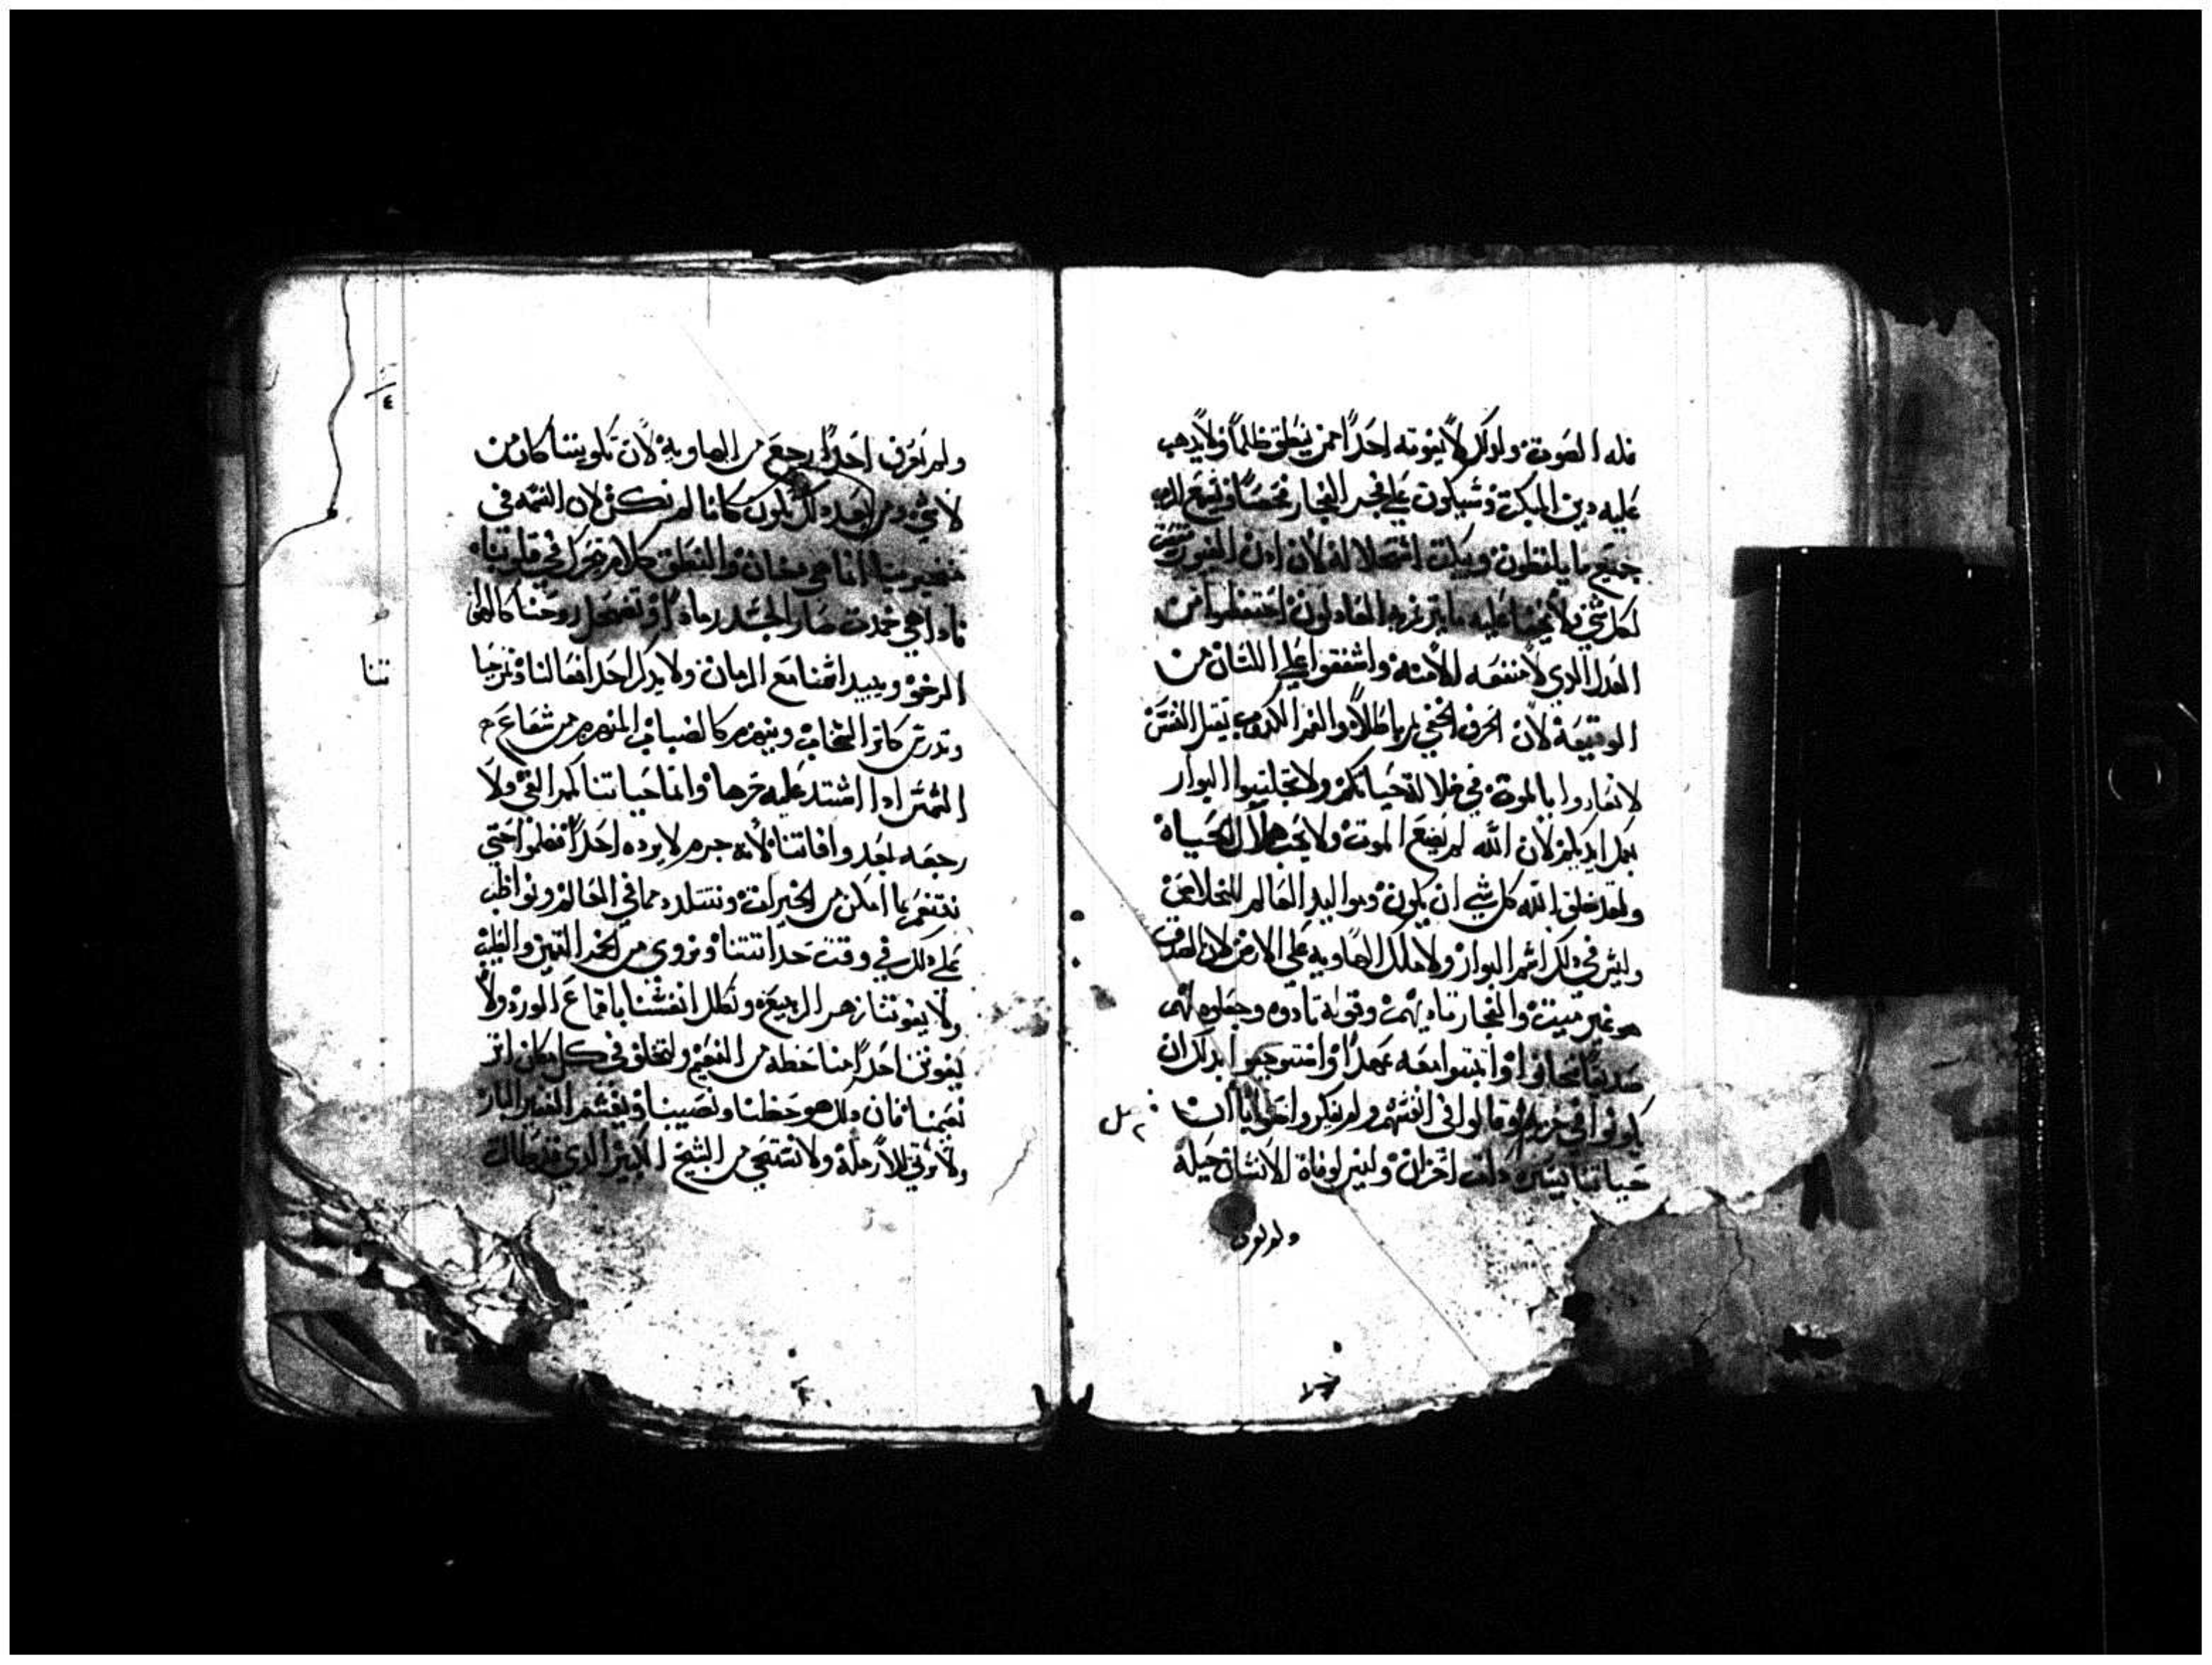 فله الصوت ولذلك لا يفوته احدًا ممن ينطق ظلمًا ولا يدهب
عليه دين المبكت وسيكون علي فجر الفجار فحصًا ويسمع الرب
جميع ما يلفظون ويبكت اثمهم لان ادن الغيور
لكل شي ولا يخفا عليه ما احتفظوا من
العدل الدي لا منفعه له واشفقوا علي اللسان من
الوقيعة لان الحرف الخفي لم باطلاً والفم الكدوب يقتل النفس
لا تغاروا بالموت في ضلالة حياتكم ولا تجلبوا البوار
بعمل ايديكم لان الله لم يضع الموت ولا يحب هلاك الحياه
ولقد خلق الله كل شي ان يكون وموالید العالم للخلاص
وليس في دلك اسم البوار ولا ملك الهاويه علي الارض لان الصدق
هو غير ميت والفجار بايديهم وقوله نادوه وجعلوه لهم
صديقًا فحافوا واثبتوا معه عهدًا واستوجبوا بدلك ان
يكونوا في حزبه وقالوا في انفسهم ولم يفكروا حقًا ان
حياتنا يسيره دات احزان وليس لوفاة الانسان حيلة
ولم نعرف
ولم نعرف احدًا رجع من الهاوية لان تكويننا كان من
لا شي ومن بعد دلك نكون كاننا لم نكن لان النسمه في
مناخيرنا انما هي دخان والنطق كلام تحرك في قلوبنا
فادا هي خمدت صار الجسد رماداً وتضمحل روحنا كالهوا
الرخو ويبيد اسمنا مع الزمان ولا يدكر احد افعالنا وتزحيا
وتدرس كاثر السحاب وينهزم كالضباب المنهزم من شعاع
الشمس ادا اشتد عليه حرها وانما حياتنا كمر الفي ولا
رجعه بعد وفاتنا لانه جرم لا يرده احدًا فهلموا حتي
نتنعم بما امكن من الخيرات ونتلدد مما في العالم ونواظب
علي دلك في وقت حداثتنا ونروي من الخمر الثمين والطيب
ولا يفوتنا زهر الربيع ونكلل انفسنا باقماع الورد ولا
يفوتن احدًا منا حظه من النعيم ولنخلف في كل مكان اثر
نعمنا فان دلك هو حظنا ونصيبنا ونغشم الفقير البار
ولا نرثي للارملة ولا نستحي من الشيخ الكبير الدي قد طالت